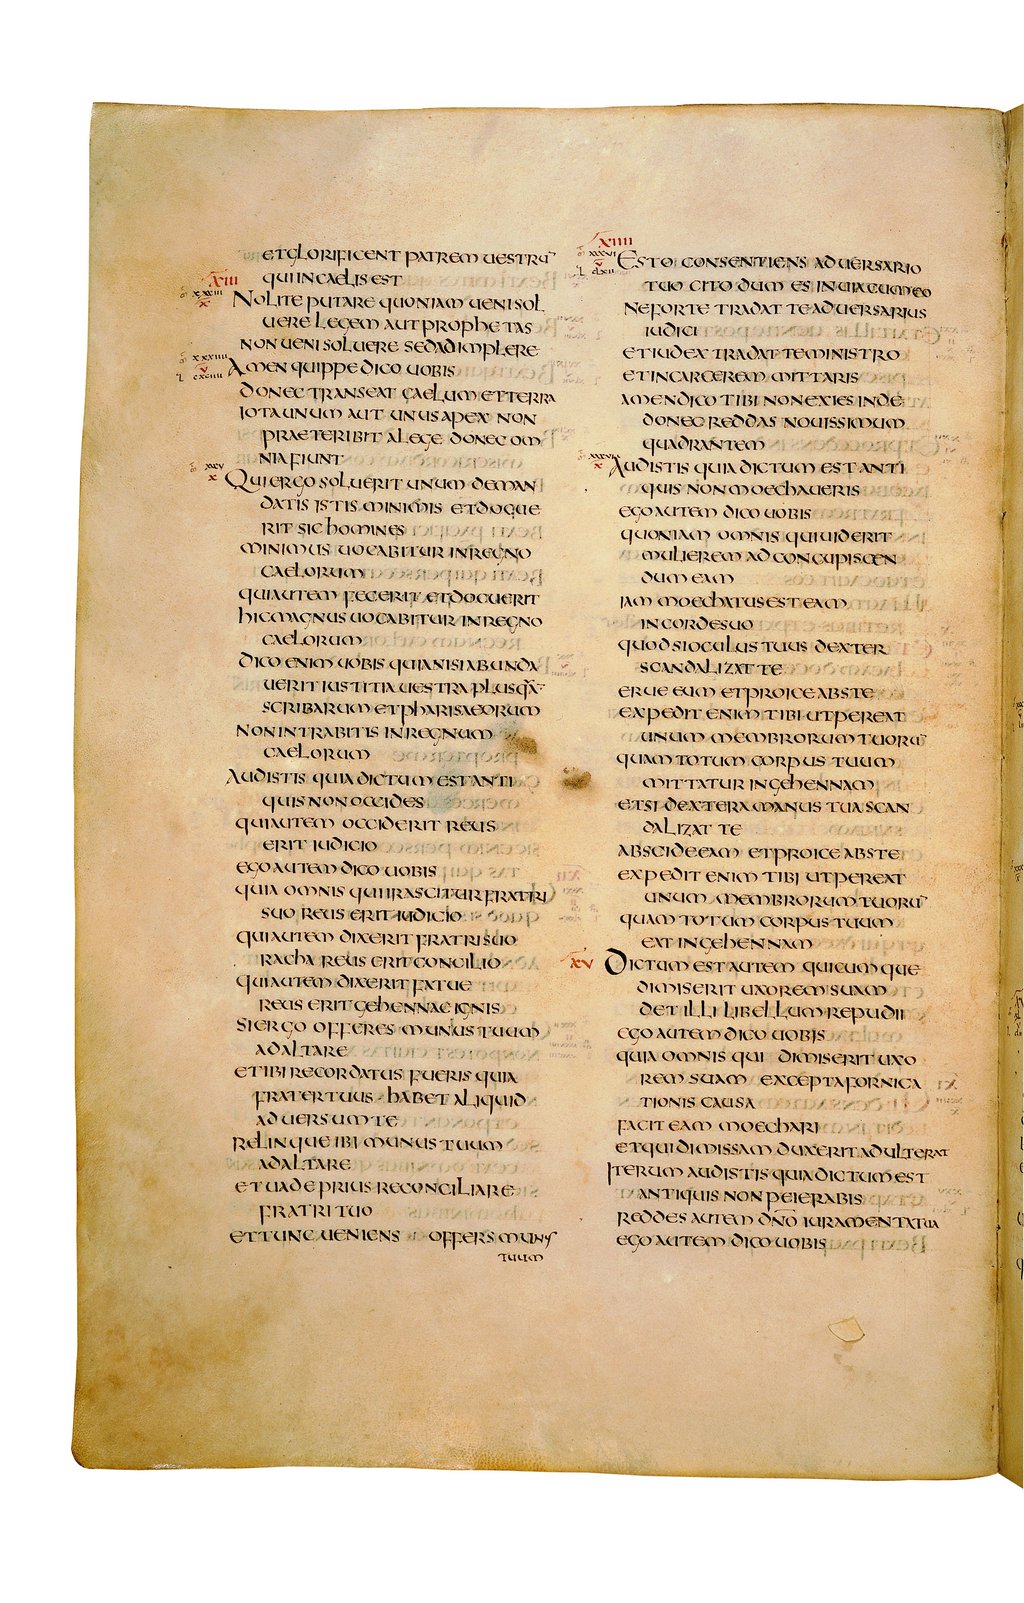 ETGLORIFICENT PATREM UESTRU̅
XIII
QUI IN CAELIS EST
XXXIII
X
NOLITE PUTARE QUONIAM UENI SOL
UERE LEGEM AUT PROPHETAS
NON UENI SOLUERE SED ADIMPLERE
XXXIIII
V
L CXCIIII
AMEN QUIPPE DICO UOBIS
DONEC TRANSEAT CAELUM ET TERRA
IOTA UNUM AUT UNUS APEX NON
PRAETERIBIT A LEGE DONEC OM
NIA FIUNT
XXXV
X
QUI ERGO SOLUERIT UNUM DE MAN
DATIS ISTIS MINIMIS ET DOCUE
RIT SIC HOMINES
MINIMUS UOCABITUR IN REGNO
CAELORUM
QUI AUTEM FECERIT ET DOCUERIT
HIC MAGNUS UOCABITUR IN REGNO
CAELORUM
DICO ENIM UOBIS QUIA NISI ABUNDA
UERIT IUSTITIA UESTRA PLUS QA̅
SCRIBARUM ET PHARISAEORUM
NON INTRABITIS IN REGNUM
CAELORUM
AUDISTIS QUIA DICTUM EST ANTI
QUIS NON OCCIDES
QUI AUTEM OCCIDERIT REUS
ERIT IUDICIO
EGO AUTEM DICO UOBIS
QUIA OMNIS QUI IRASCITUR FRATRI
SUO REUS ERIT IUDICIO
QUI AUTEM DIXERIT FRATRI SUO
RACHA REUS ERIT CONCILIO
QUI AUTEM DIXERIT FATUE
REUS ERIT GEHENNAE IGNIS
SI ERGO OFFERES MUNUS TUUM
AD ALTARE
ET IBI RECORDATUS FUERIS QUIA
FRATER TUUS HABET ALIQUID
ADUERSUM TE
RELINQUE IBI MUNUS TUUM
AD ALTARE
ET UADE PRIUS RECONCILIARE
FRATRI TUO
ET TUNC UENIENS OFFERS MUNUS
TUUM
XIIII
XXXVI
V
L CLXII
ESTO CONSENTIENS ADUERSARIO
TUO CITO DUM ES IN UIA CUM EO
NE FORTE TRADAT TE ADUERSARIUS
IUDICI
ET IUDEX TRADAT TE MINISTRO
ET IN CARCEREM MITTARIS
AMEN DICO TIBI NON EXIES INDE
DONEC REDDAS NOUISSIMUM
QUADRANTEM
XXXVII
X
AUDISTIS QUIA DICTUM EST ANTI
QUIS NON MOECHAUERIS
EGO AUTEM DICO UOBIS
QUONIAM OMNIS QUI UIDERIT
MULIEREM AD CONCUPISCEN
DUM EAM
IAM MOECHATUS EST EAM
IN CORDE SUO
QUOD SI OCULUS TUUS DEXTER
SCANDALIZAT TE
ERUE EUM ET PROICE ABS TE
EXPEDIT ENIM TIBI UT PEREAT
UNUM MEMBRORUM TUORU̅
QUAM TOTUM CORPUS TUUM
MITTATUR IN GEHENNAM
ET SI DEXTERA MANUS TUA SCAN
DALIZAT TE
ABSCIDE EAM ET PROICE ABS TE
EXPEDIT ENIM TIBI UT PEREAT
UNUM MEMBRORUM TUORU̅
QUAM TOTUM CORPUS TUUM
EAT IN GEHENNAM
XV
DICTUM EST AUTEM QUICUMQUE
DIMISERIT UXOREM SUAM
DET ILLI LIBELLUM REPUDII
EGO AUTEM DICO UOBIS
QUIA OMNIS QUI DIMISERIT UXO
REM SUAM EXCEPTA FORNICA
TIONIS CAUSA
FACIT EAM MOECHARI
ET QUI DIMISSAM DUXERIT ADULTERAT
ITERUM AUDISTIS QUIA DICTUM EST
ANTIQUIS NON PEIERABIS
REDDES AUTEM DN̅O IURAMENTA TUA
EGO AUTEM DICO UOBIS